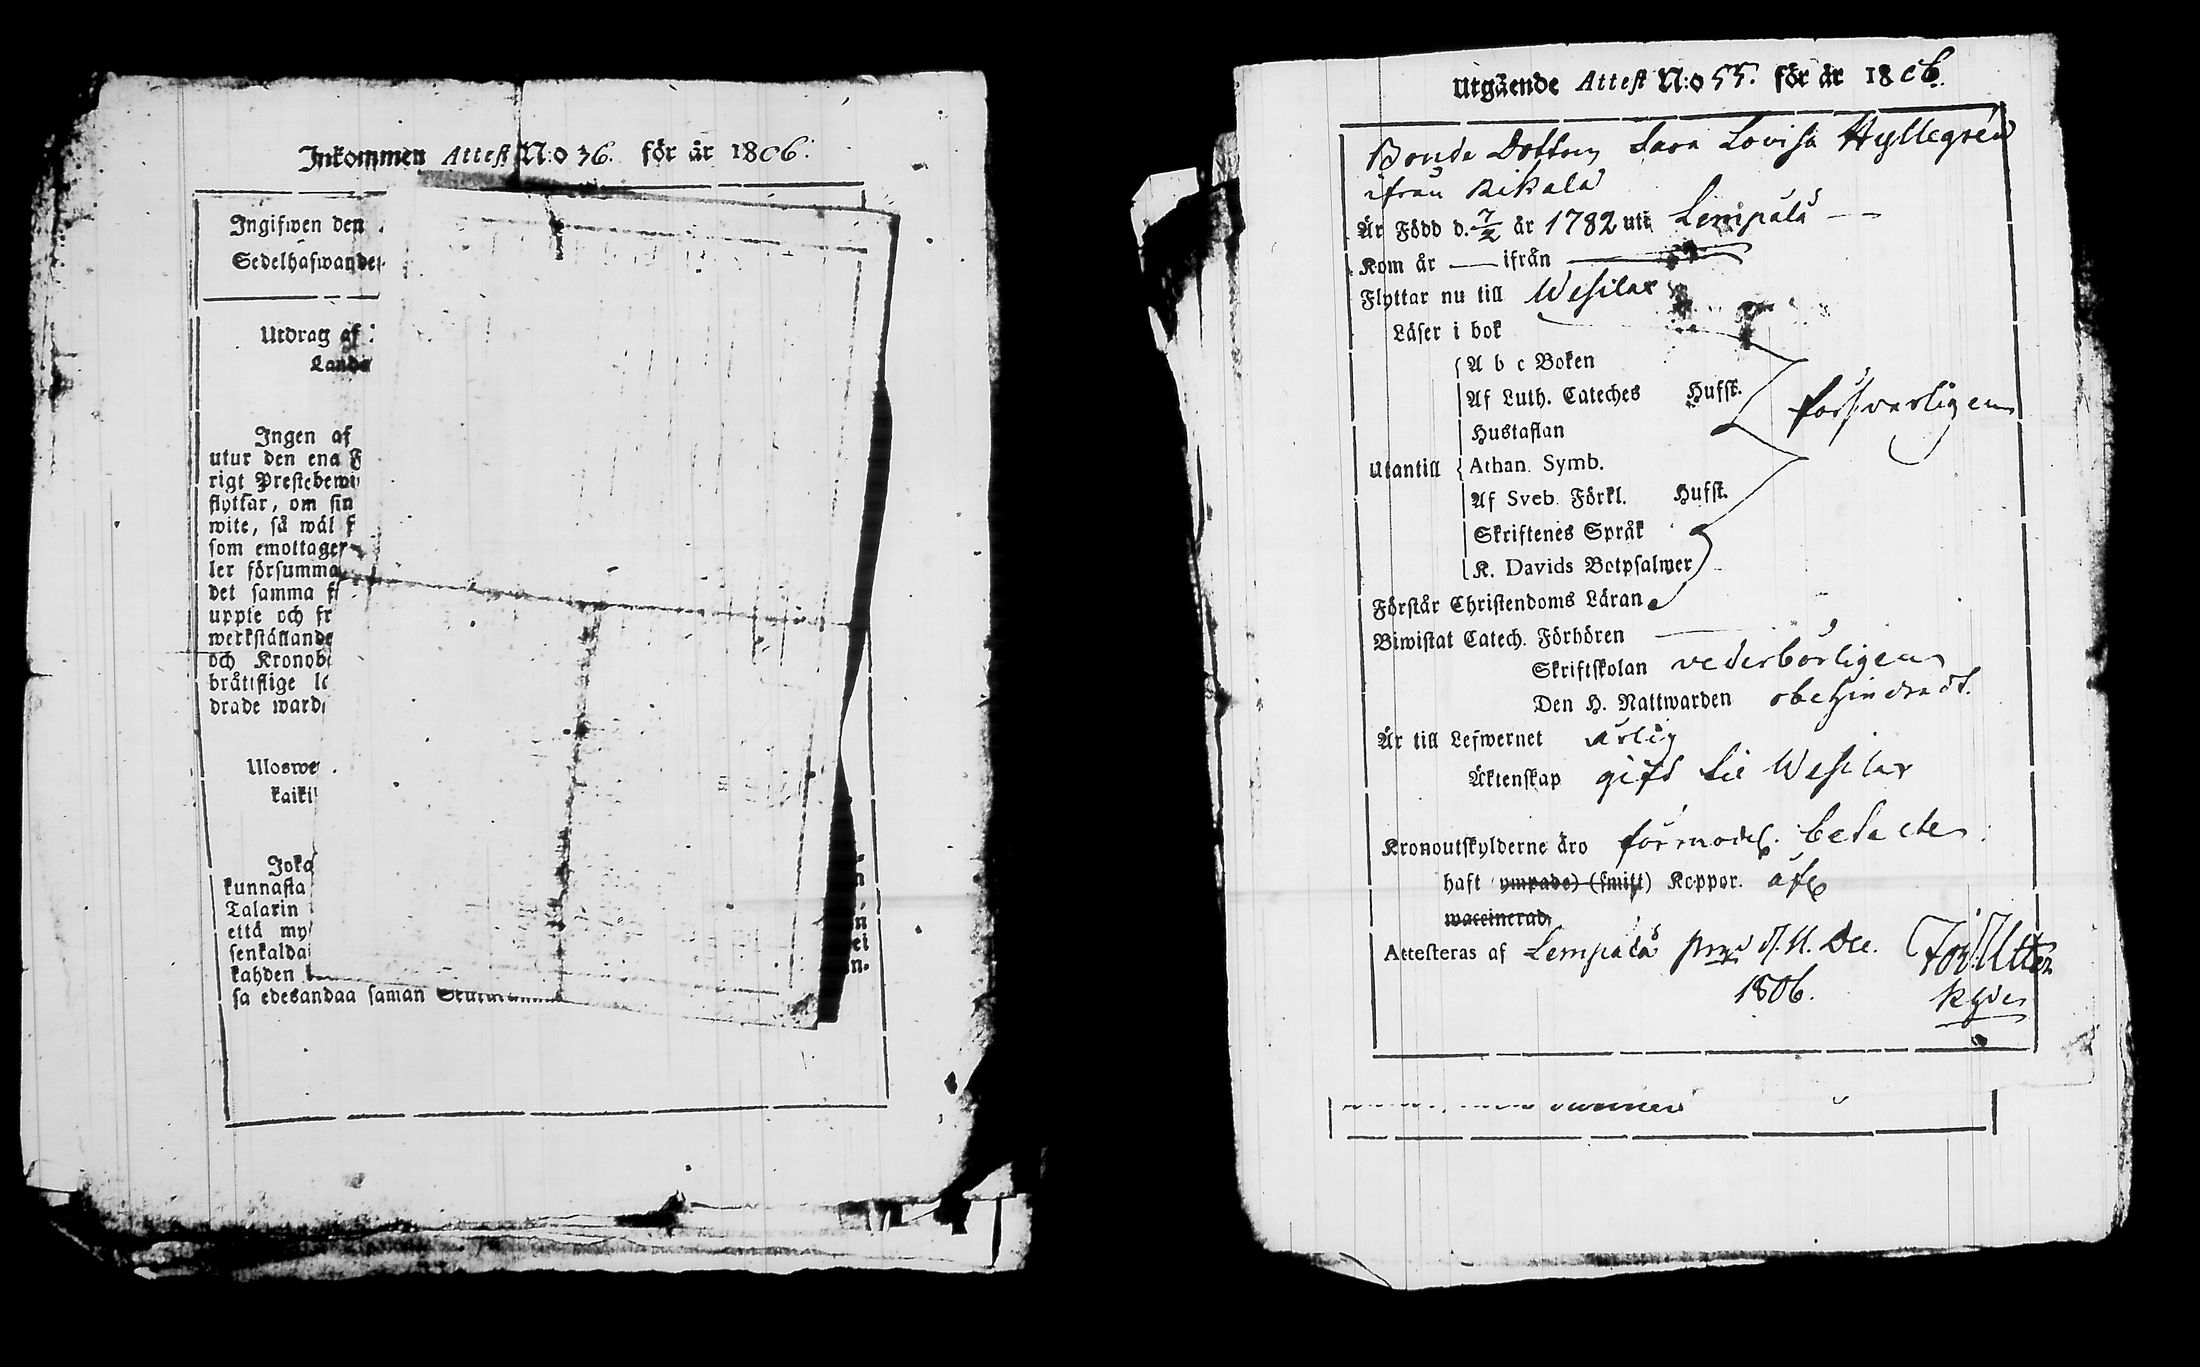 Inkommen Attest N:o 36. för år 1806.
Ingifwen den
Sedelhafwande
Utdrag af
Lands
Ingen af
utur den ena F
rigt Prestebewi
flyttar, om sin
wite, så wäl f
som emottager
ler försumma
det samma f
uppte och fr
werkställande
och Kronob
bråttslige le
drade ward
Uloswe
kaiki
Joka
kunnasta
Talarin
että my
senkalda
kahden
sa edesandaa saman
n
n
ei
n.
Utgående Attest N:o 55. för år 1806.
Bonde Dottren Sara Lovisa Hyllegrén
ifrån Rikala
Är Född d. 7/2 år 1782 uti Lempälä
Kom år — ifrån —
Flyttar nu till Wesilax
Läser i bok
A b c Boken
Af Luth. Cateches Hufst.
försvarligen
Hustaflan
Utantill Athan. Symb.
Af Sveb. Förkl. Hufst.
Skriftenes Språk
K. Davids Botpsalmer
Förstår Christendoms Läran
Biwistat Catech. Förhören
Skriftskolan vederbörligen
Den H. Nattwarden obehindradt.
Är till Lefwernet ärlig
Äktenskap gift til Wesilax
Kronoutskylderne äro förmodel. betalte.
haft ympade) (smitt) Koppor.
waccinerad,
Attesteras af Lempälä d. 11. Dec.
1806.